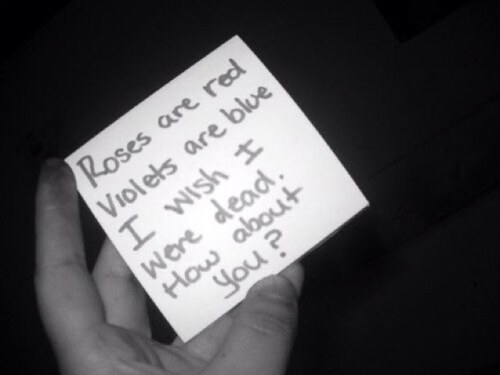 Roses are red
Violets are blue
I wish I
were dead.
How about
you?